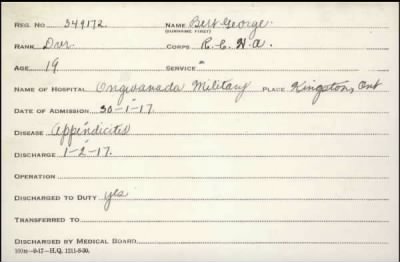 REG. NO. 349172. NAME Bert George.
(SURNAME FIRST)
RANK Dvr. CORPS R.C.H.A.
AGE 19 SERVICE "
NAME OF HOSPITAL Ongwanada Military PLACE Kingston, Ont
DATE OF ADMISSION 30-1-17.
DISEASE Appendicitis
DISCHARGE 1-2-17.
OPERATION
DISCHARGED TO DUTY yes
TRANSFERRED TO
DISCHARGED BY MEDICAL BOARD
100m-9-17-H.Q. 1211-8-30.